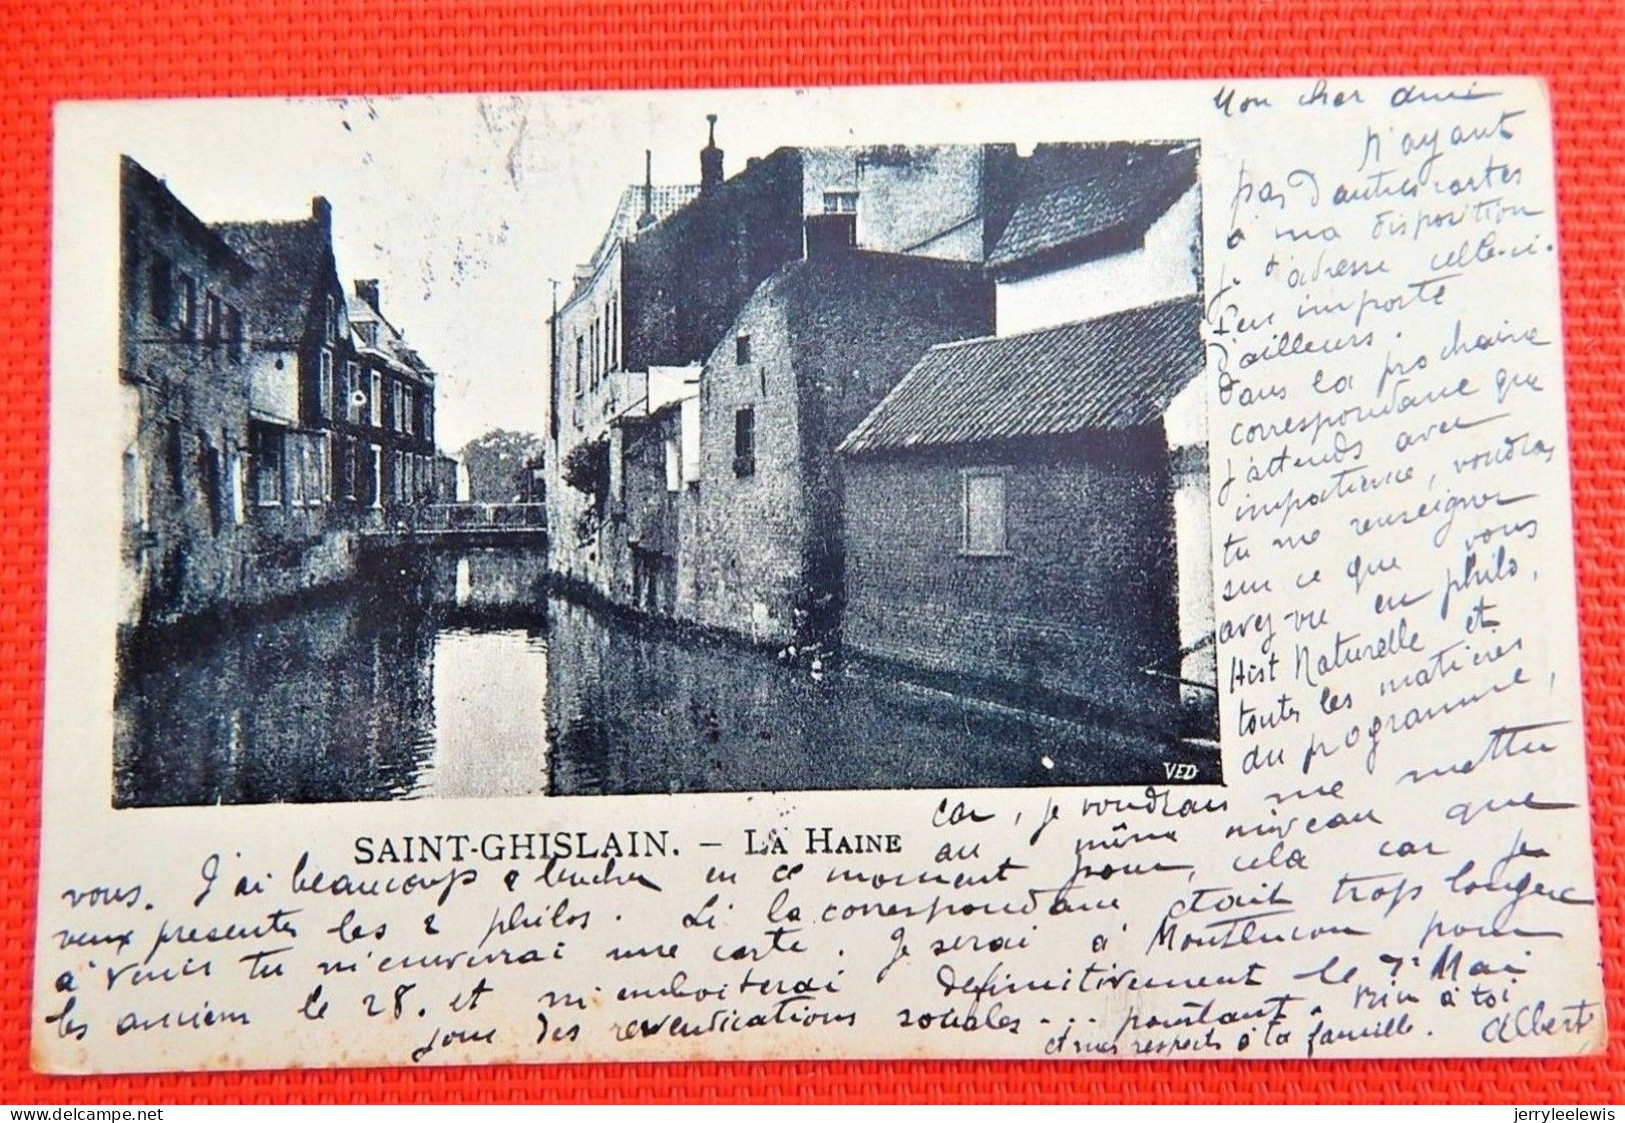 Mon cher ami
N'ayant
pas d'autres cartes
à ma disposition
je t'adresse celle-ci.
d'ailleurs.
Dans la prochaine
correspondance que
j'attends avec
impatience, voudras
tu me renseigner
sur ce que vous
avez vu en philo,
Hist Naturelle et
toutes les matières
du programme,
car, je voudrais me mettre
au même niveau que
vous. J'ai beaucoup à bucher en ce moment pour cela car je
veux presenter les 2 philos. Si la correspondance était trop longue
à venir tu m'enverrai une carte. Je serai à Montluçon pour
les anciens le 28. et m'emboiterai definitivement le 1r Mai
jour des revendications sociales... pourtant. Rien à toi
et mes respects à ta famille. Albert
SAINT-GHISLAIN. – LA HAINE
VED
delcampe.net
jerryleelewis